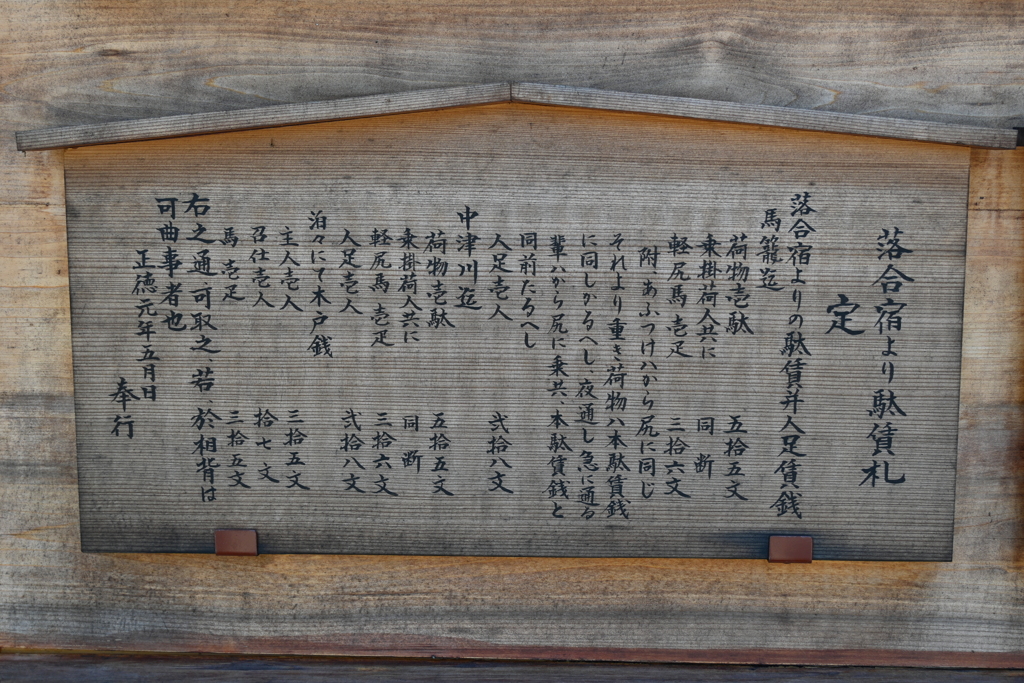 落合宿より駄賃札
定
落合宿よりの駄賃并人足賃銭
馬籠迄
荷物壱駄 五拾五文
乗掛荷人共に 同断
軽尻馬壱疋 三拾六文
附、あふつけハから尻に同じ
それより重き荷物ハ本駄賃銭
に同しかるへし、夜通し急に通る
輩ハから尻に乗共、本駄賃銭と
同前たるへし
人足壱人 弐拾八文
中津川迄
荷物壱駄 五拾五文
乗掛荷人共に 同断
軽尻馬壱疋 三拾六文
人足壱人 弐拾八文
泊々にて木戸銭
主人壱人 三拾五文
召仕壱人 拾七文
馬壱疋 三拾五文
右之通可取之、若、於相背は
可曲事者也
正徳元年五月日
奉行